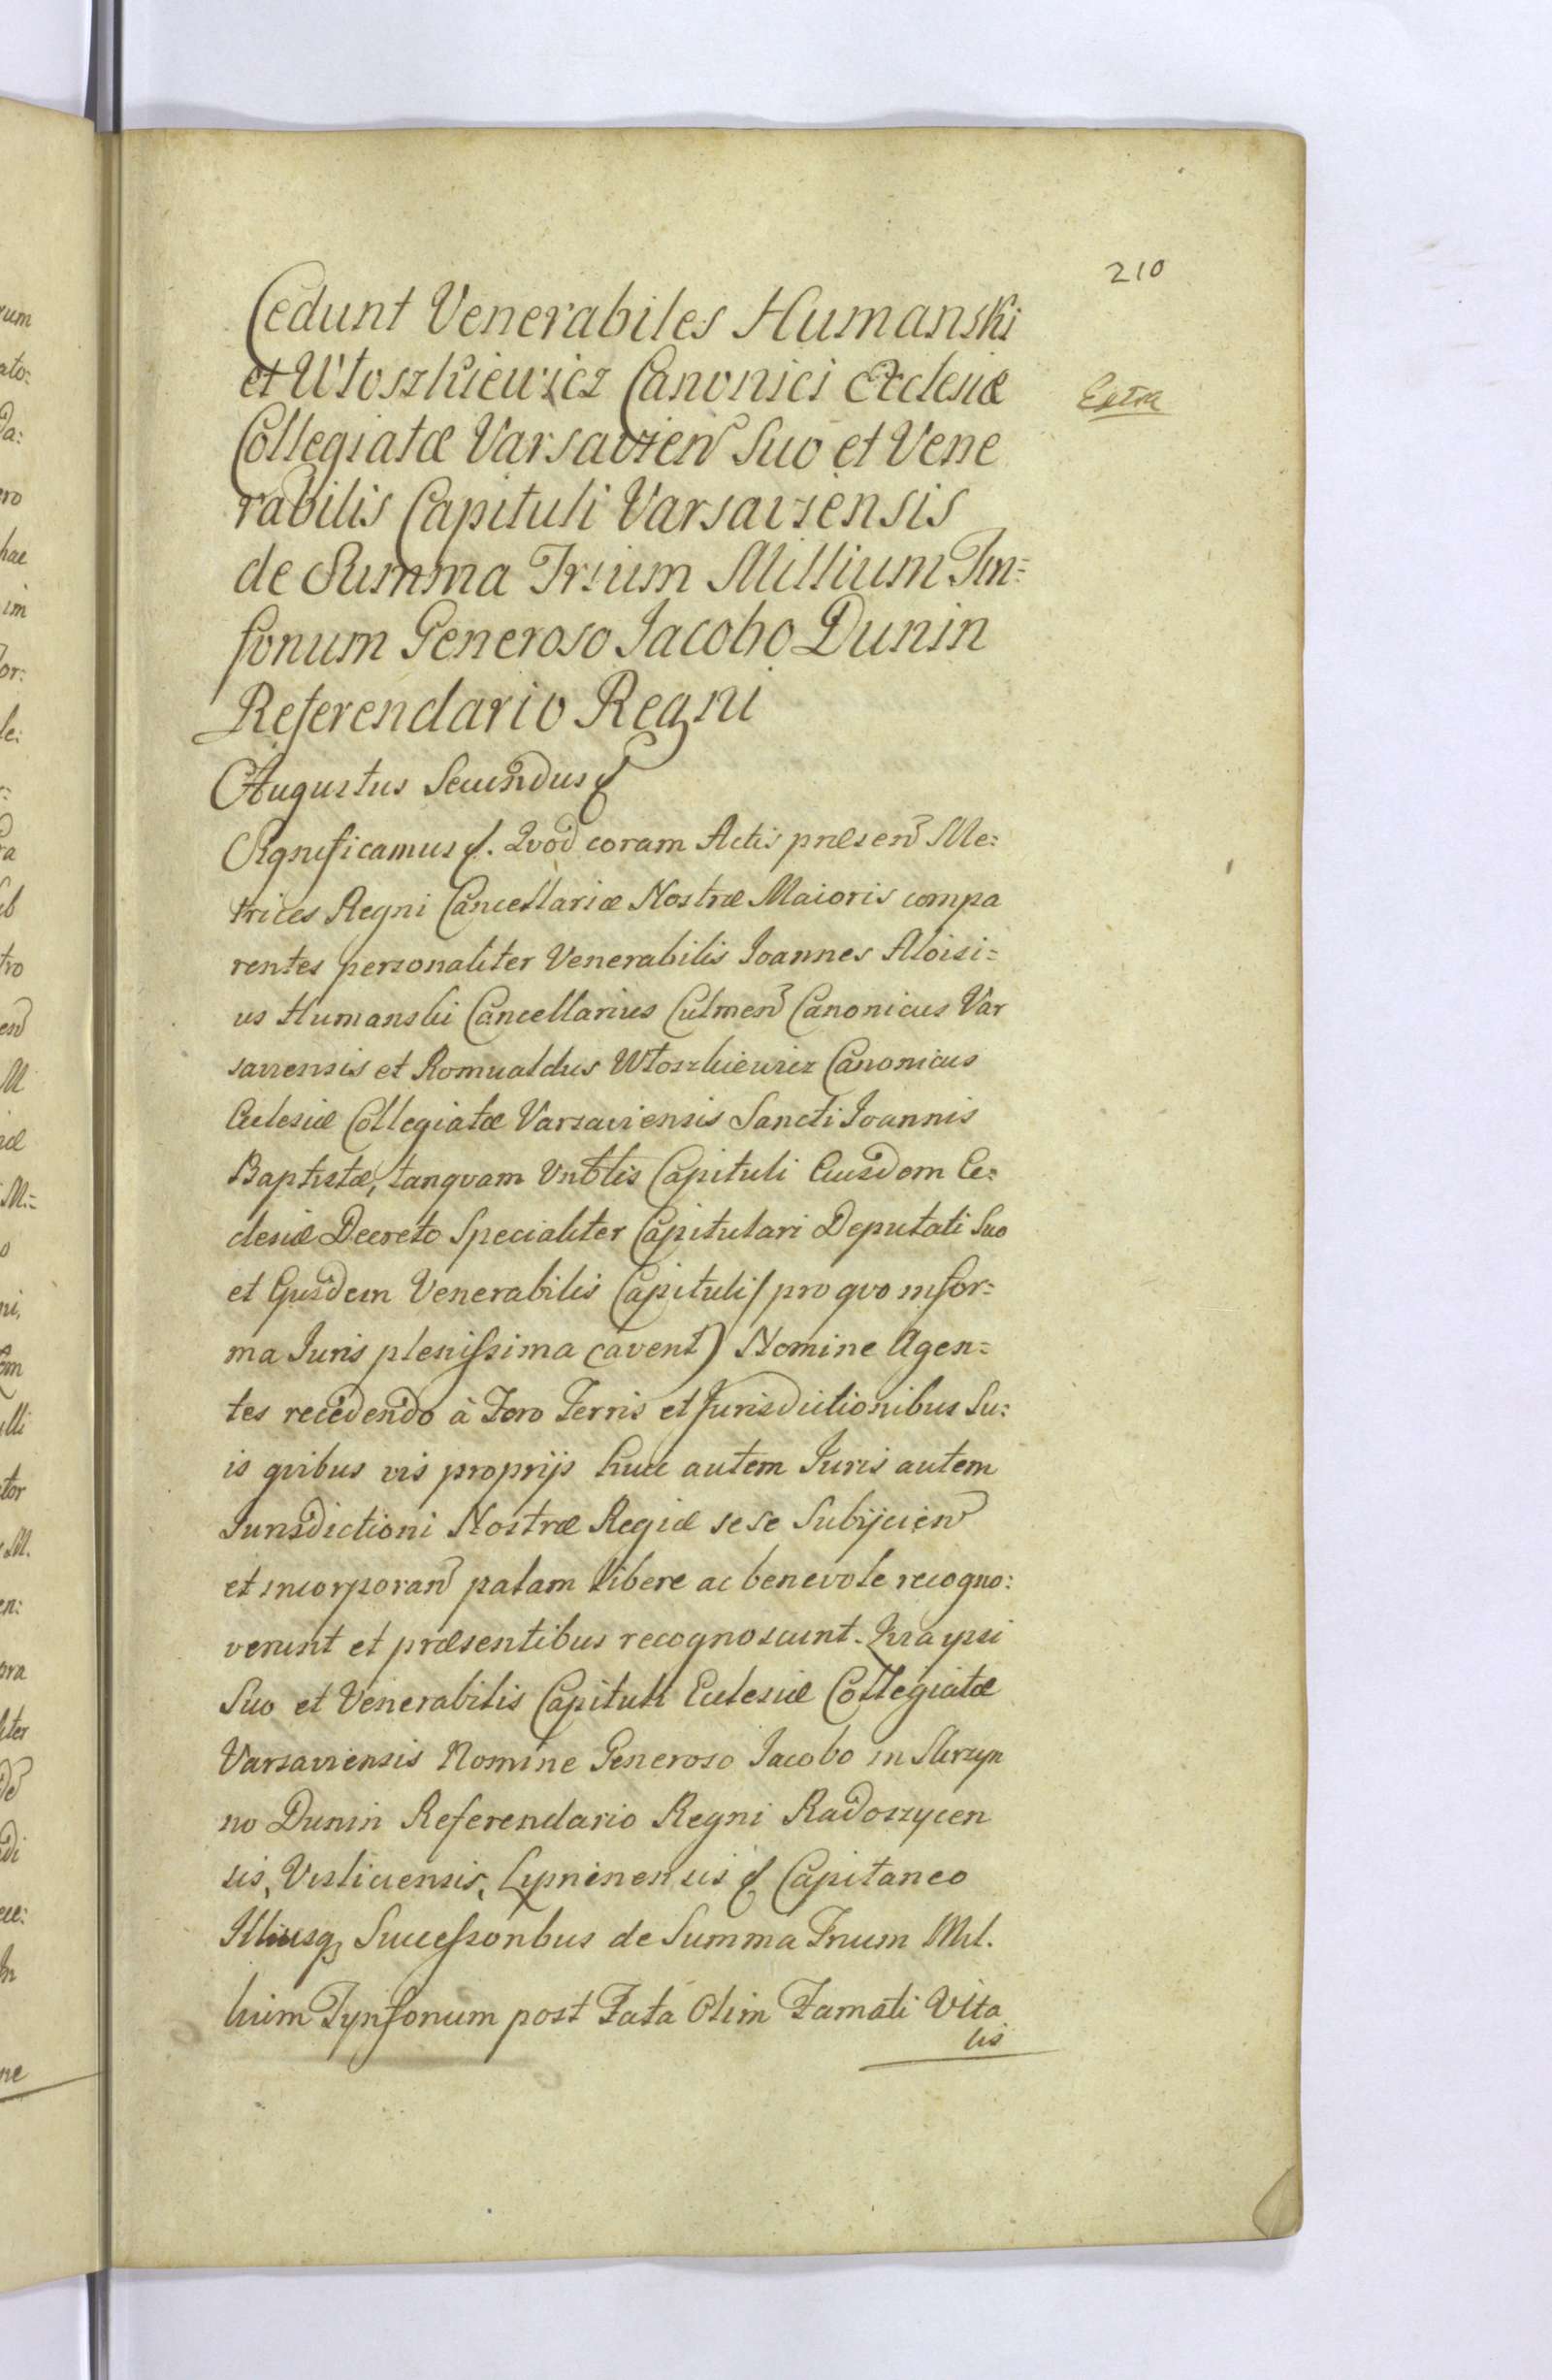 210
Cedunt Venerabiles Humanski
et Włoszkiewicz Canonici Ecclesiæ
Extra
Collegiatæ Varsavien Suo et Vene
rabilis Capituli Varsaviensis
de Summa Trium Millium Tin=
fonum Generoso Jacobo Dunin
Referendario Regni
Augustus Secundus &
Significamus &. Qvod coram Actis præsen Me:
trices Regni Cancellariæ Nostræ Maioris compa
rentes personaliter Venerabilis Joannes Aloisi=
us Humanski Cancellarius Culmen Canonicus Var
saviensis et Romualdus Włoszkiewicz Canonicus
Ecclesiæ Collegiatæ Varsaviensis Sancti Joannis
Baptistæ, tanqvam Vnblis Capituli Eiusdem Ec=
clesiæ Decreto Specialiter Capitulari Deputati Suo
et Ejusdem Venerabilis Capituli / pro qvo in for=
ma Juris plenissima cavent) Nomine Agen=
tes recedendo à Foro Terris et Jurisdictionibus Su:
is qvibus vis proprijs huic autem Juris autem
Jurisdictioni Nostræ Regiæ sese Subijcien
et incorporan palam libere ac benevole recogno:
verunt et præsentibus recognoscunt. Qvia ipsi
Suo et Venerabilis Capituli Ecclesiæ Collegiatæ
Varsaviensis Nomine Generoso Jacobo in Skrzyn
no Dunin Referendario Regni Radoszycen
sis, Visliciensis, Lipninensis & Capitaneo
Illiusq Successoribus de Summa Trium Mil.
lium Tynfonum post Fata Olim Famati Vita
lis